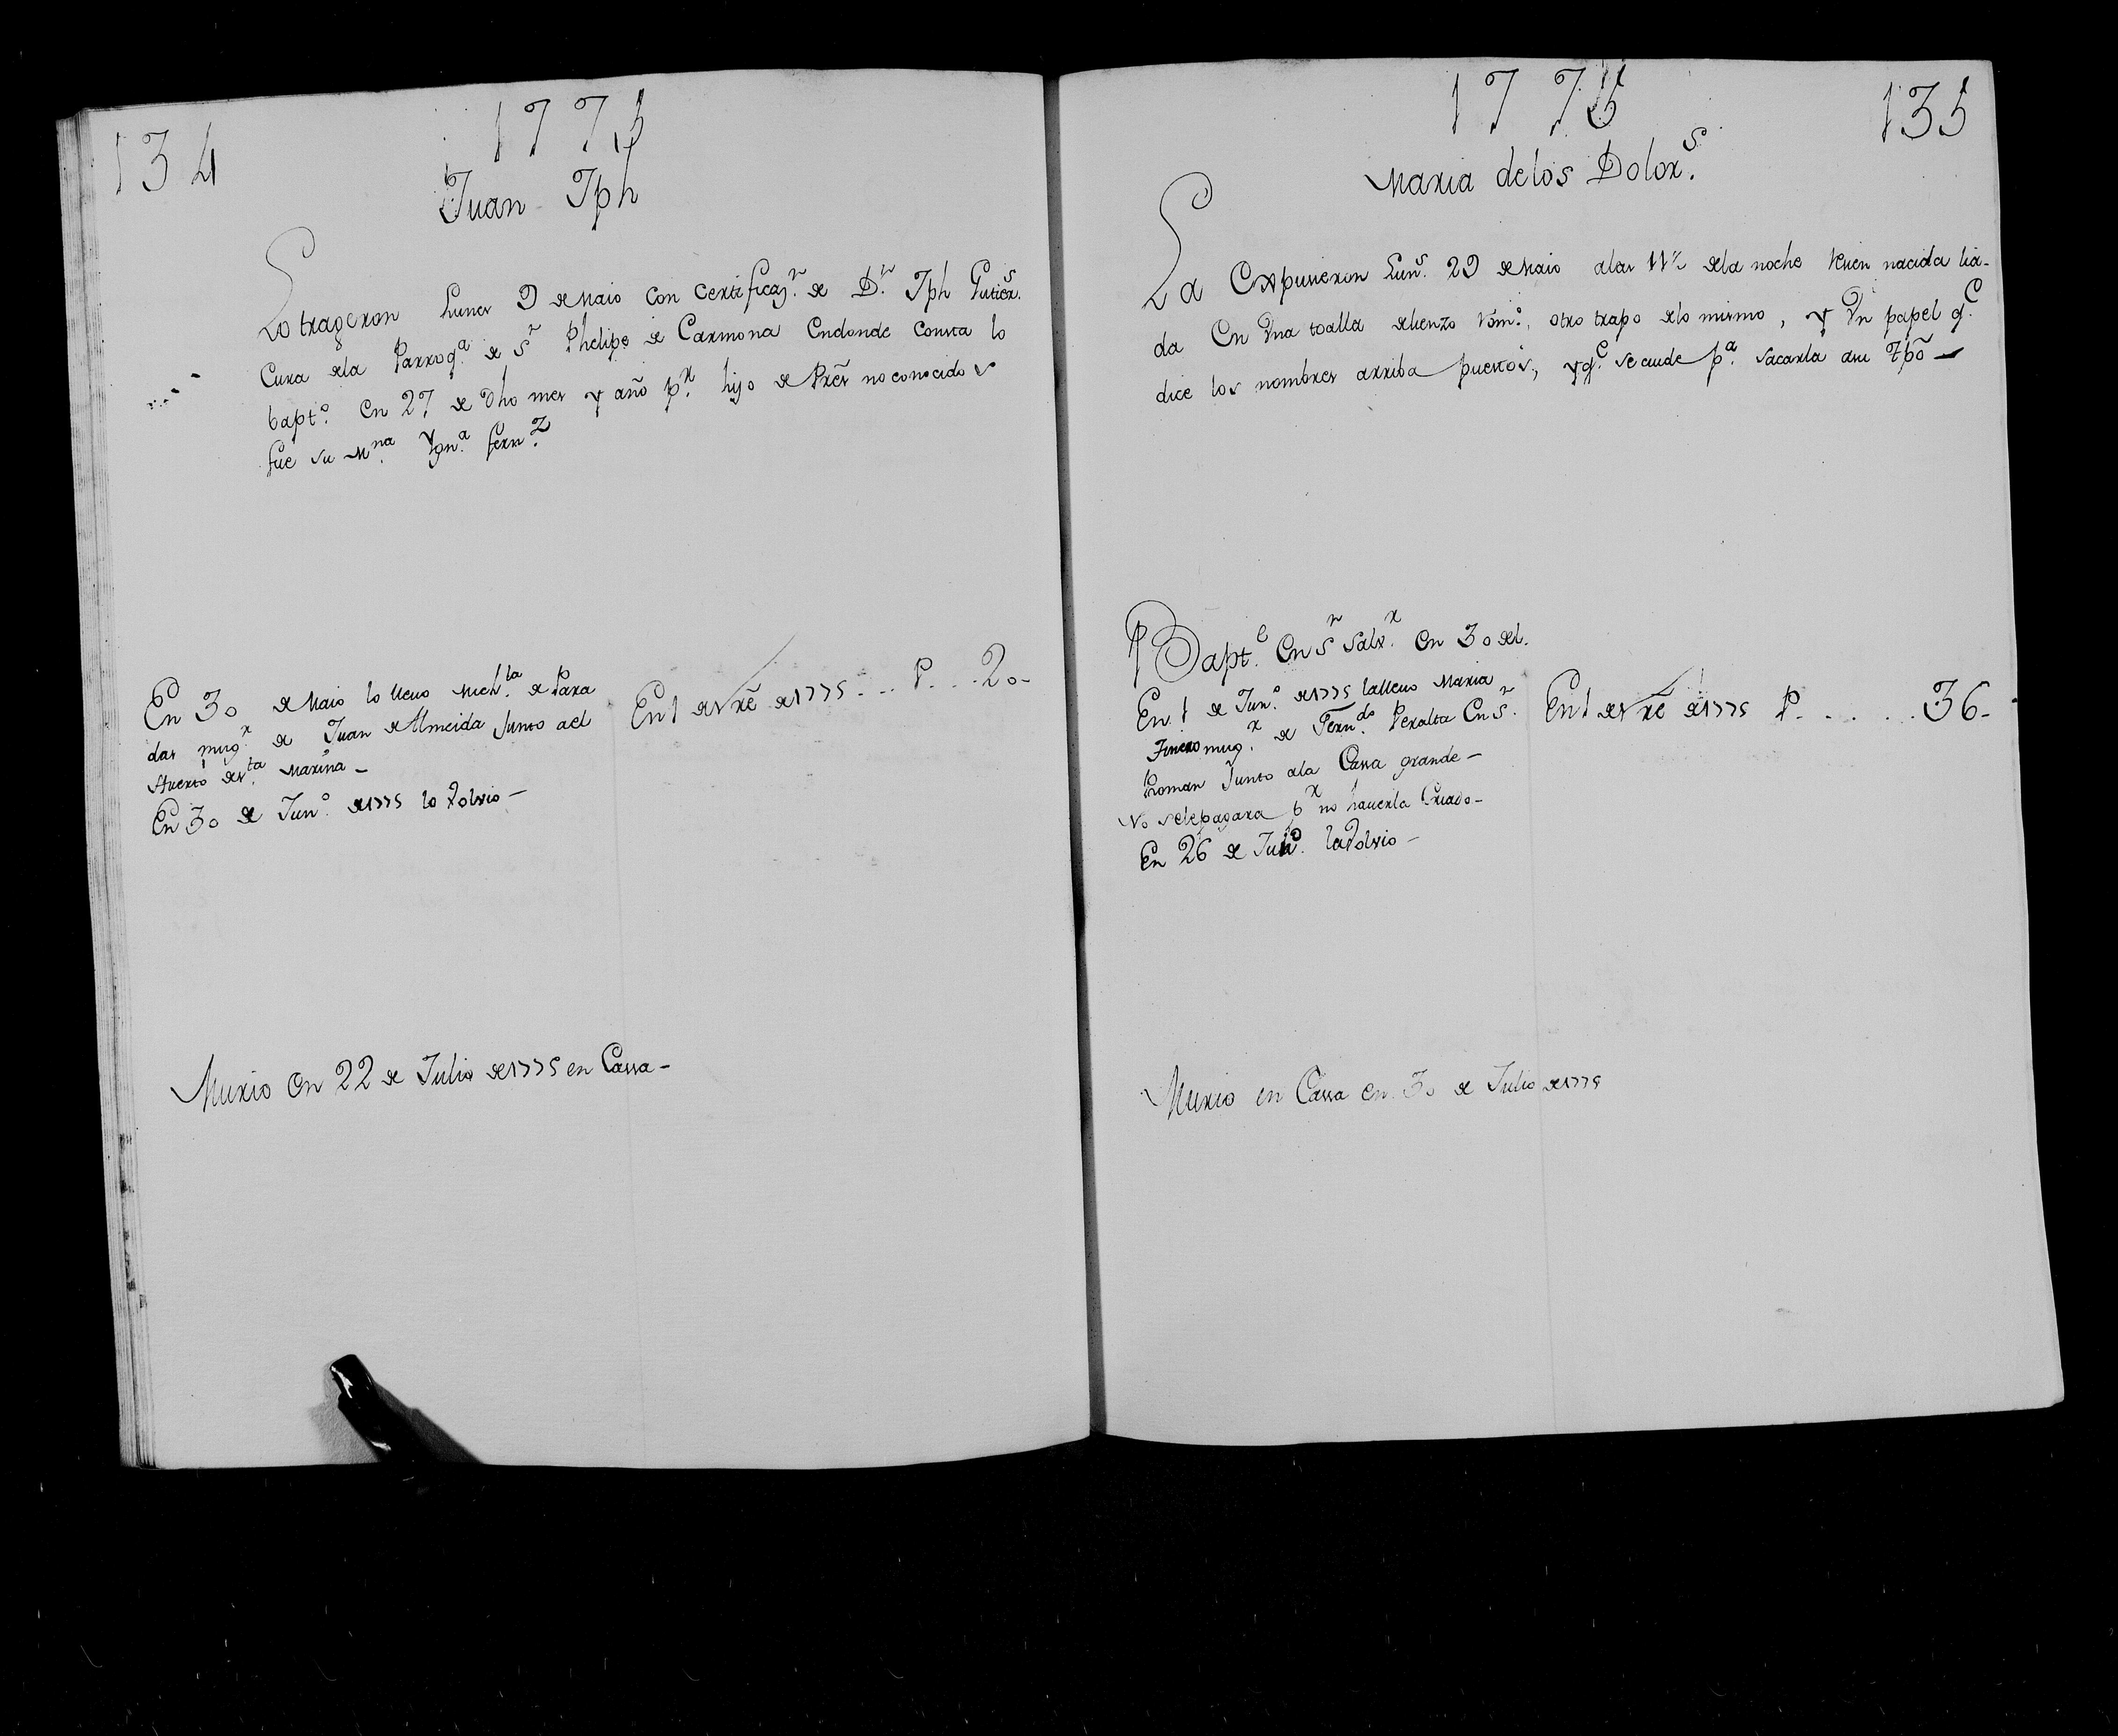 134
1775
Juan Jph
Lo trageron Lunes 29 de Maio con certificaz.n de D.n Jph Gutierr.s
Cura dela Parroq.a de S.n Phelipe de Carmona Endonde consta lo
bapt.o en 27 de dho mes y año p.r hijo de Prēs no conocidos
fue su M.na Ygn.a fern.z
En 30 de Maio lo llevo Mich.la de Para
das mug.r de Juan de Almeida junto ael
Huerto de s.ta Marina -
En 30 de Jun.o de 1775 lo Volvio -
En 1 de 7rē de 1775 ... P ... 20 -
Murio en 22 de Julio de 1775 en Cassa -
1775
135
Maria delos Dolor.s
La Expusieron Lun.s 29 de Maio alas 11½ dela noche Recien nacida lia-
da En Vna toalla de lienzo, otro trapo delo mismo, y Vn papel q.e
dice los nombres arriba puestos, y q.e se cuide p.a sacarla asu Tpō -
Bapt.e En S.n Salv.r en 30 del.
En 1 de Jun.o de 1775 la llevo Maria
Jinero mug.r de Fern.do Peralta En S.n
Roman Junto ala Cassa grande -
No se le pagara p.r no haverla Criado -
En 26 de Jun.o la Volvio -
En 1 de 7rē de 1775 P. . . . . . 36 -
Murio en Cassa en 30 de Julio de 1775